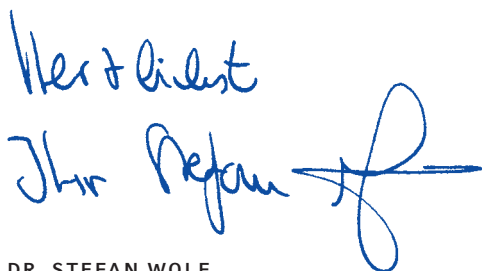 Herzlichst
Ihr Stefan Wolf
DR. STEFAN WOLF